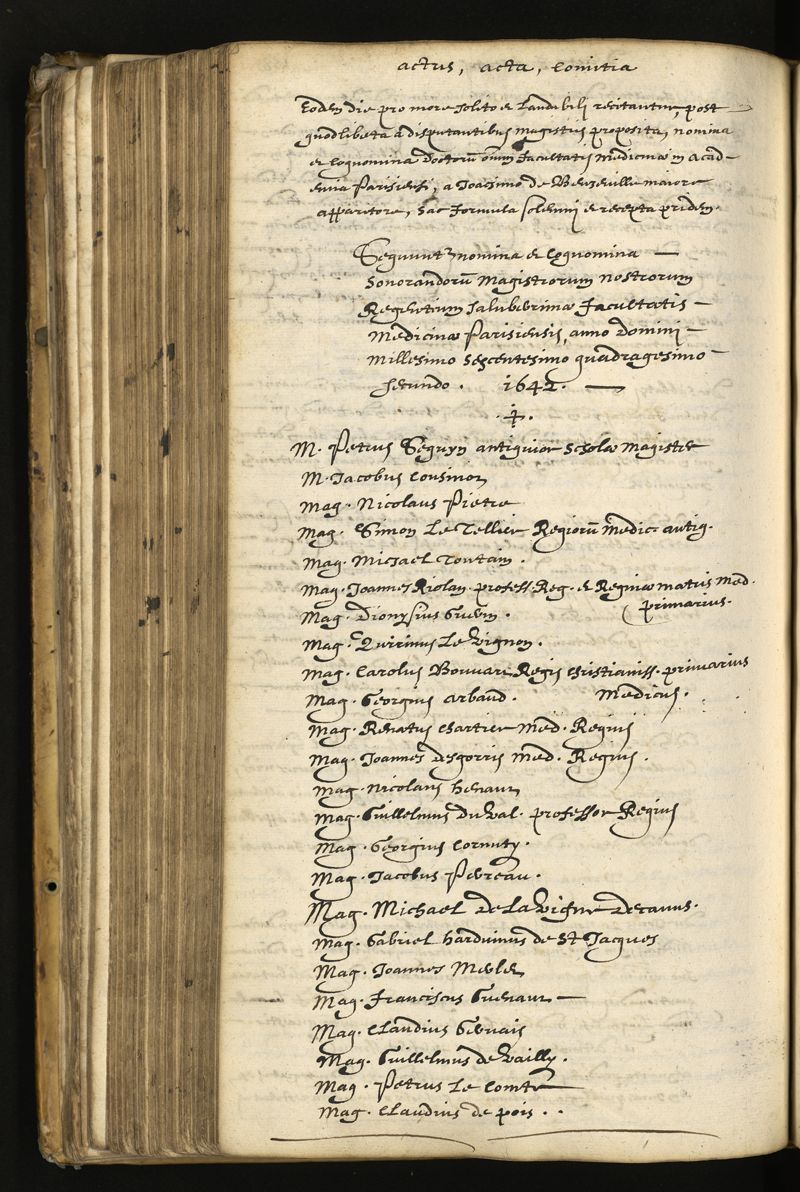 actus, acta, comitia
Eodem die pro more solito et laudabili recitantur, post
quodlibeta a disputantibus magistris proposita, nomina
et cognomina Doctorū oium facultatis medicinæ in acad-
emia Parisiensi, a Joachimo de Benzeville maiore
apparitore, hac formula solemni et recepta pridem.
Sequunt nomina et cognomina —
honorandorū Magistrorum nostrorum
Regentium saluberrimæ facultatis —
Medicinæ Parisiensis, anno Domini —
Millesimo sexcentesimo quadragesimo —
secundo. 1642. —
M. Petrus Seguyn antiquior scholæ magister
M. Jacobus Cousinot
Mag. Nicolaus Pietre
Mag. Simon Le Tellier Regiorū medic. antiq.
Mag. Michael Toutain.
Mag. Joannes Riolan. profess. Reg. et Reginæ matris med.
primarius.
Mag. Dionysius Guerin.
Mag. Quirinus Le Vignon.
Mag. Carolus Bouvart Regis christianiss. primarius
medicus.
Mag. Georgius Arbaud.
Mag. Renatus Chartier med. Regius
Mag. Joannes Desgorris med. Regius.
Mag. Nicolaus henaut
Mag. Guillelmus du Val. professor Regius
Mag. Georgius Cornuty.
Mag. Jacobus Perreau.
Mag. Michael De La Vigne Decanus.
Mag. Gabriel harduinus de St Jacques
Mag. Joannes Merlet
Mag. Franciscus Guenaut —
Mag. Claudius Gervais
Mag. Guillelmus de Vailly.
Mag. Petrus Le Comte
Mag. Claudius de pois. .